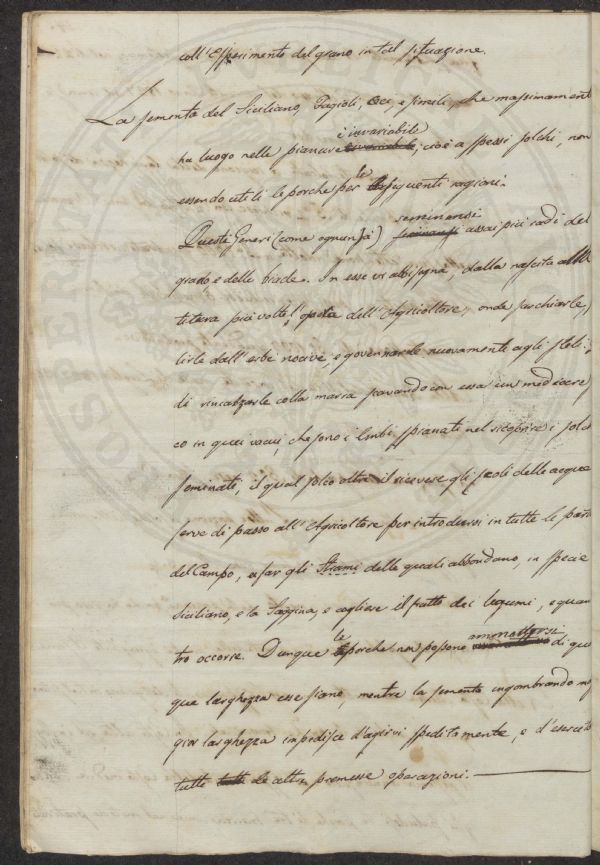 coll'Esperimento del grano in tal situazione.
La sementa del Siciliano, Fagioli, Ceci, e simili, che massinament
è invariabile
ha luogo nelle pianure invariabile, cioè a spessi solchi, non
essendo utili le porche per le seguenti ragioni.
seminansi
Questi Generi (come ognun sà) assai più radi del
grano e delle biade. In esse vi abbisogna, dalla nascita alla
più volte l'opera dell'Agricoltore, onde sarchiarle,
lirle dall'erbe nocive, e governarle nuovamente agli steli:
di rincalzarle colla marra scavando con essa un mediocre
co in quei vacui, che sono i lembi spianati nel ricoprire i solch
seminati, il qual solco oltre il ricevere gli scoli delle acque
serve di passo all'Agricoltore per introdursi in tutte le parti
del Campo, e far gli Strami delle quali abbondano, in specie
Siciliano, e la Saggina, e cogliere il frutto dei legumi, e quan
le
ammettersi
tro occorre. Dunque porche non possono di qua
que larghezza esse siano, mentre la sementa ingombrando
gior larghezza impedisce d'agirvi speditamente, e d'esercita
tutte tutte le altre premesse operazioni.